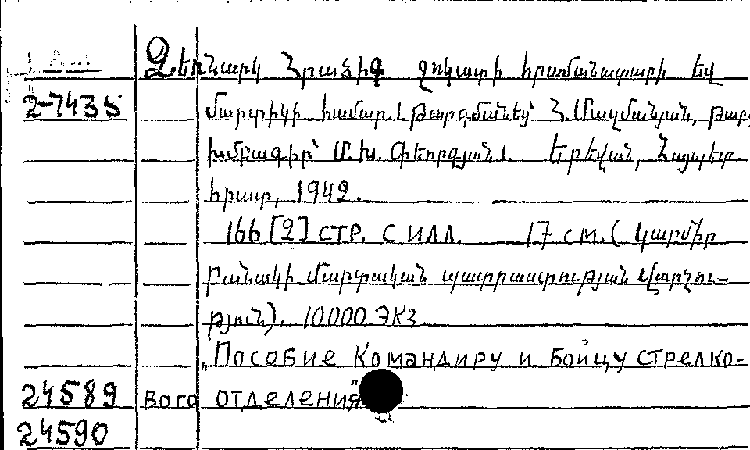 Ձեռնարկ Հրաձիգ ջոկատի հրամանատարի եվ
2-7435 մարտիկի համար. [Թարգմանեց՝ Հ. Մազմանյան, թարգ
խմբագիր՝ Մ. Խ. Գեորգյան]. Երեվան, Հայպետ
հրատ, 1942.
166 [2] СТР. С ИЛЛ. 17 СМ. (Կարմիր
բանակի մարտական պատրաստության վարչու-
թյուն). 10.000 ЭКЗ
"Пособие Командиру и Бойцу стрелко-
24589 вого отделения"
24590